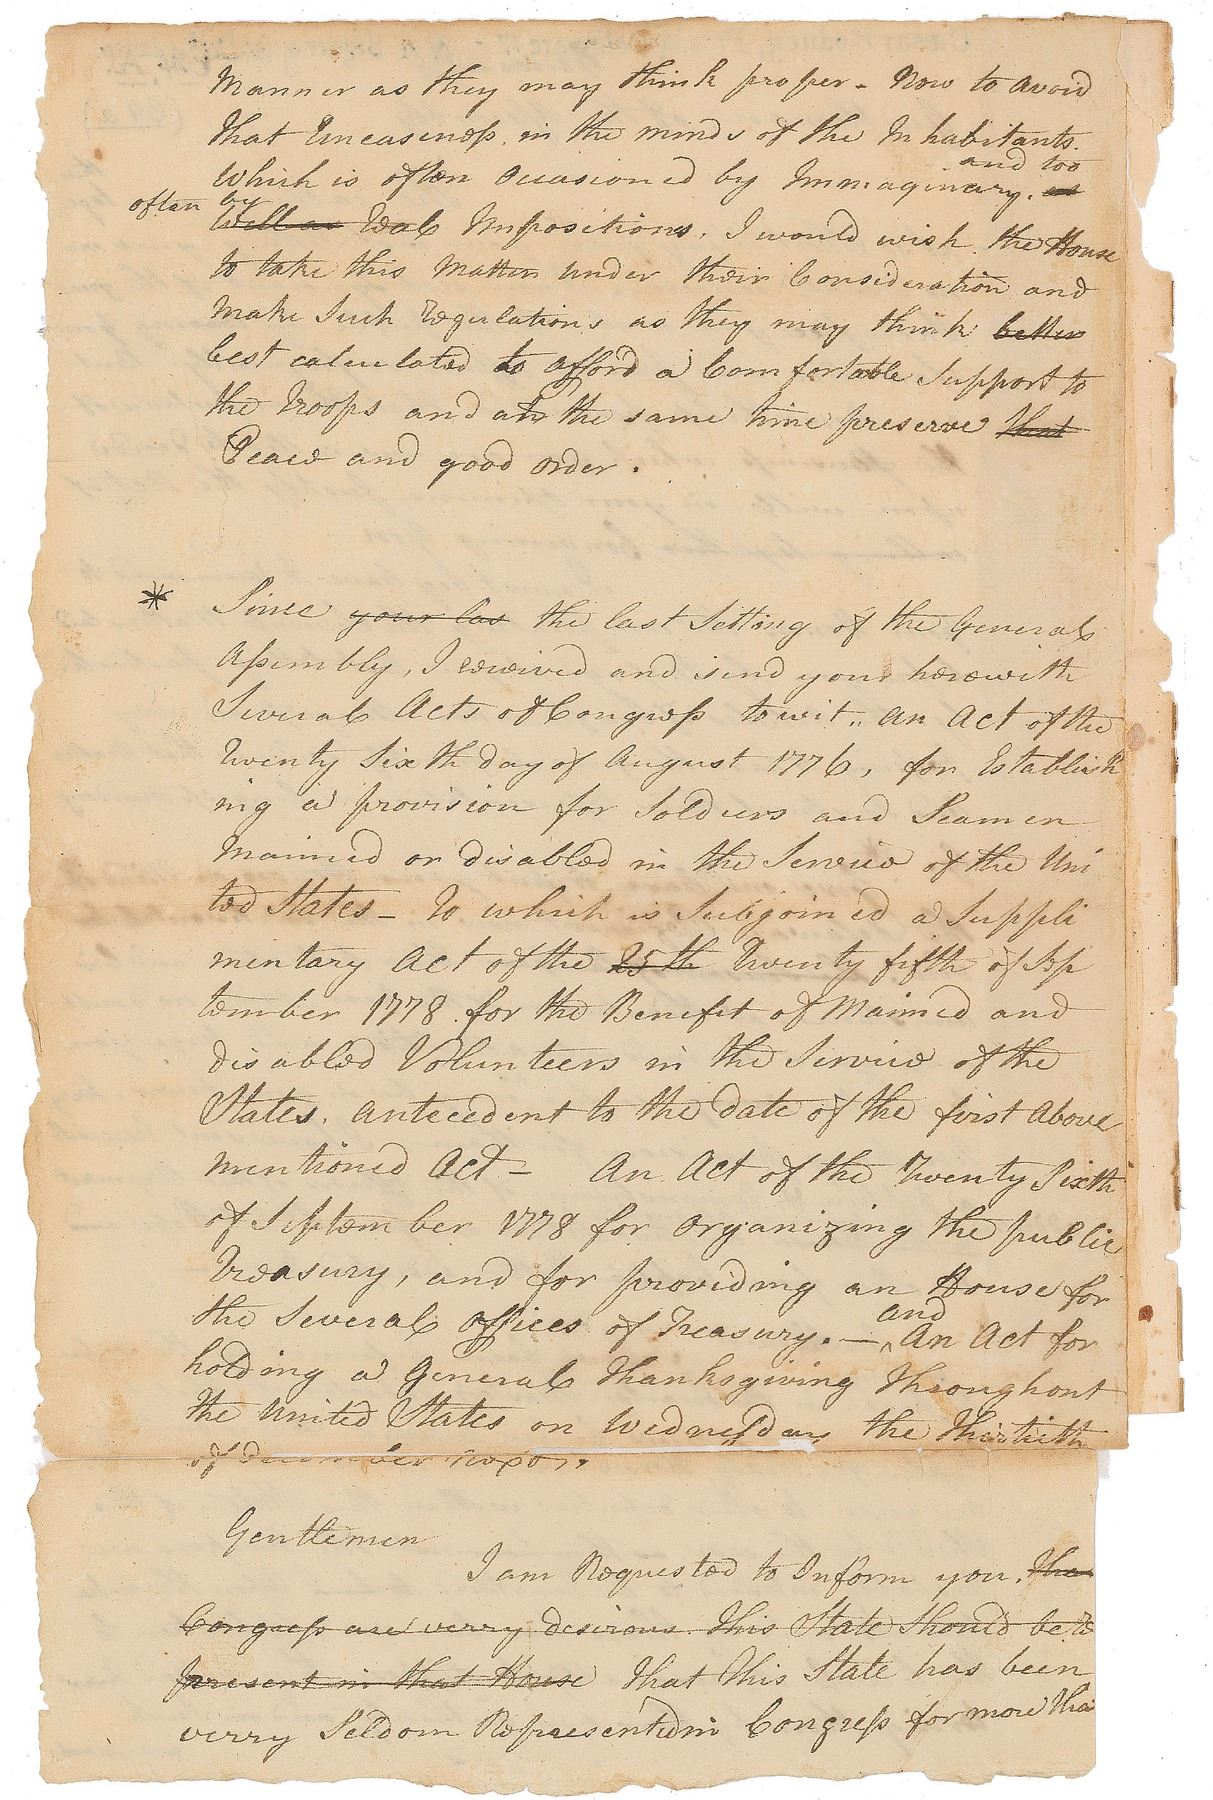 Manner as they may think proper - Now to avoid
that Uneasiness in the minds of the Inhabitants.
and too
Which is often Occasioned by Immaginary. as
often by
Well as Real Impositions, I would wish the House
to take this Matter under their Consideration and
make Such Regulations as they may think better
best calculated to afford a Comfortable Support to
the Troops and at the same time preserve that
Peace and good order.
* Since your las the last Sitting of the General
Assembly, I received and send you herewith
Several Acts of Congress to wit,, an Act of the
Twenty Sixth day of August 1776, for Establish
ing a provision for Soldiers and Seamen
Maimed or disabled in the Service of the Uni
ted States - To which is Subjoined a Suppli
mentary Act of the 25th Twenty fifth of Sep
tember 1778 for the Benefit of Maimed and
disabled Volunteers in the Service of the
States, antecedent to the date of the first Above
mentioned Act - An Act of the Twenty Sixth
of September 1778 for Organizing the public
Treasury, and for providing an House for
the Several offices of Treasury. —
and
^ An Act for
holding a General Thanksgiving Throughout
the United States on Wednesday the Thirtieth
of December
Gentlemen
I am Requested to Inform you, tha
Congress are verry desirous this State Should be re
present in that House That this State has been
verry Seldom Represented in Congress for more tha